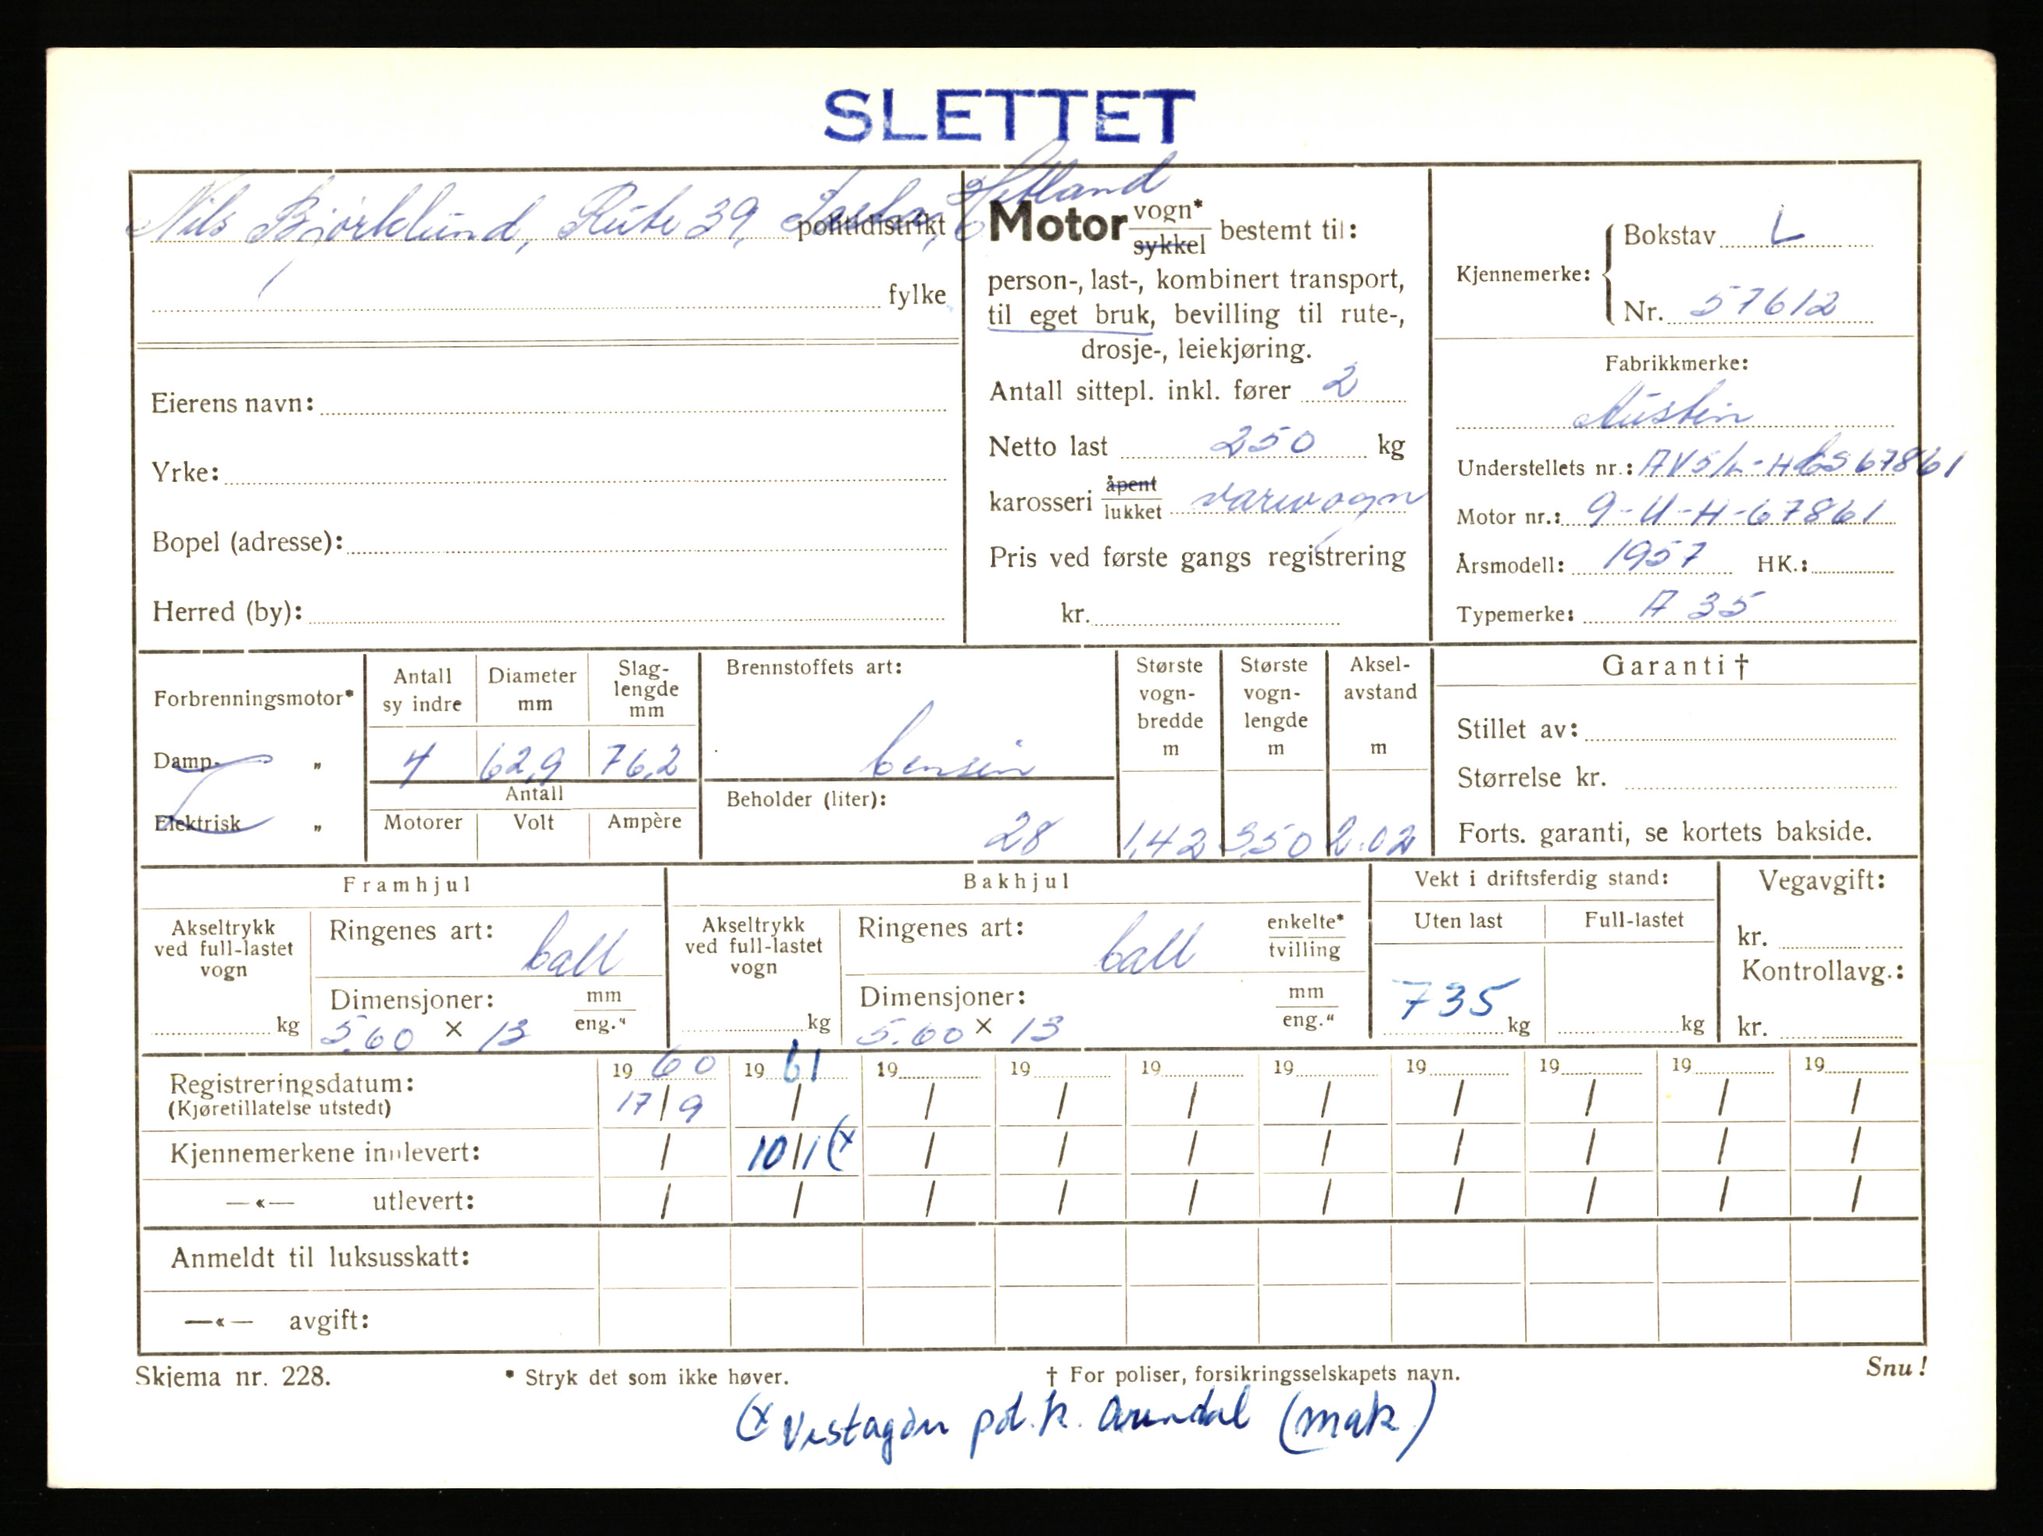 SLETTET
Nils Bjørklund, Rute 39, Hetland
politidistrikt
fylke
Eierens navn:
Yrke:
Bopel (adresse):
Herred (by):
Motor vogn* sykkel bestemt til:
person-, last-, kombinert transport,
til eget bruk, bevilling til rute-,
drosje-, leiekjøring.
Antall sittepl. inkl. fører 2
Netto last 250 kg
karosseri åpent lukket varevogn
Pris ved første gangs registrering
kr.
Kjennemerke:
Bokstav L
Nr. 57612
Fabrikkmerke:
Austin
Understellets nr.:
Motor nr.: 9-U-H-67861
Årsmodell: 1957 HK.:
Typemerke: A 35
Forbrenningsmotor*
Damp- „
Elektrisk „
Antall sy indre
Diameter mm
Slag-lengde mm
4 62,9 76,2
Antall
Motorer Volt Ampère
Brennstoffets art:
bensin
Beholder (liter):
28
Største vogn-bredde m
1,42
Største vogn-lengde m
3,50
Aksel-avstand m
2.02
Garanti †
Stillet av:
Størrelse kr.
Forts. garanti, se kortets bakside.
Framhjul
Akseltrykk ved full-lastet vogn
kg
Ringenes art: ball
Dimensjoner: mm eng."
5.60 × 13
Bakhjul
Akseltrykk ved full-lastet vogn
kg
Ringenes art: ball enkelte* tvilling
Dimensjoner: mm eng."
5.60 × 13
Vekt i driftsferdig stand:
Uten last Full-lastet
735 kg kg
Vegavgift:
kr.
Kontrollavg.:
kr.
Registreringsdatum: 19 60 19 61 19 19 19 19 19 19 19 19
(Kjøretillatelse utstedt) 17/9 / / / / / / / / /
Kjennemerkene innlevert: / 10/1 (x / / / / / / / /
—«— utlevert: / / / / / / / / / /
Anmeldt til luksusskatt:
—«— avgift:
Skjema nr. 228. * Stryk det som ikke høver. † For poliser, forsikringsselskapets navn. Snu!
(x pol.k. Arendal (mak)